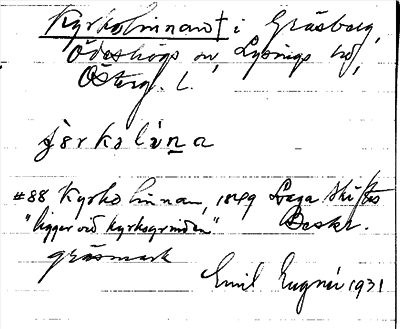 Kyrkolinnan † i Gräsberg,
Ödeshögs sn, Lysings hd,
Österg. L.
#88 Kyrkolinnan, 1849 Laga Skiftes
"ligger vid kyrkogrinden" Beskr.
gräsmark
Emil Eugnér 1931